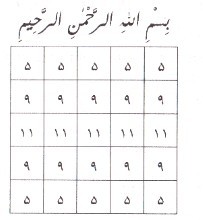 بِسْمِ اللهِ الرَّحْمٰنِ الرَّحِيْمِ
۵ ۵ ۵ ۵ ۵
۹ ۹ ۹ ۹ ۹
۱۱ ۱۱ ۱۱ ۱۱ ۱۱
۹ ۹ ۹ ۹ ۹
۵ ۵ ۵ ۵ ۵